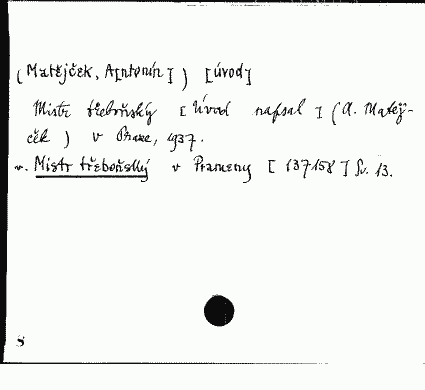 (Matějček, A[ntonín]) [úvod]
Mistr třeboňský [Úvod napsal] (A. Matěj-
ček) v Praze, 1937.
v. Mistr třeboňský v Prameny [137158] Sv. 13.
S